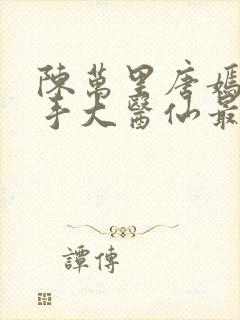 陳萬里唐嫣
手大醫仙最
譚傳